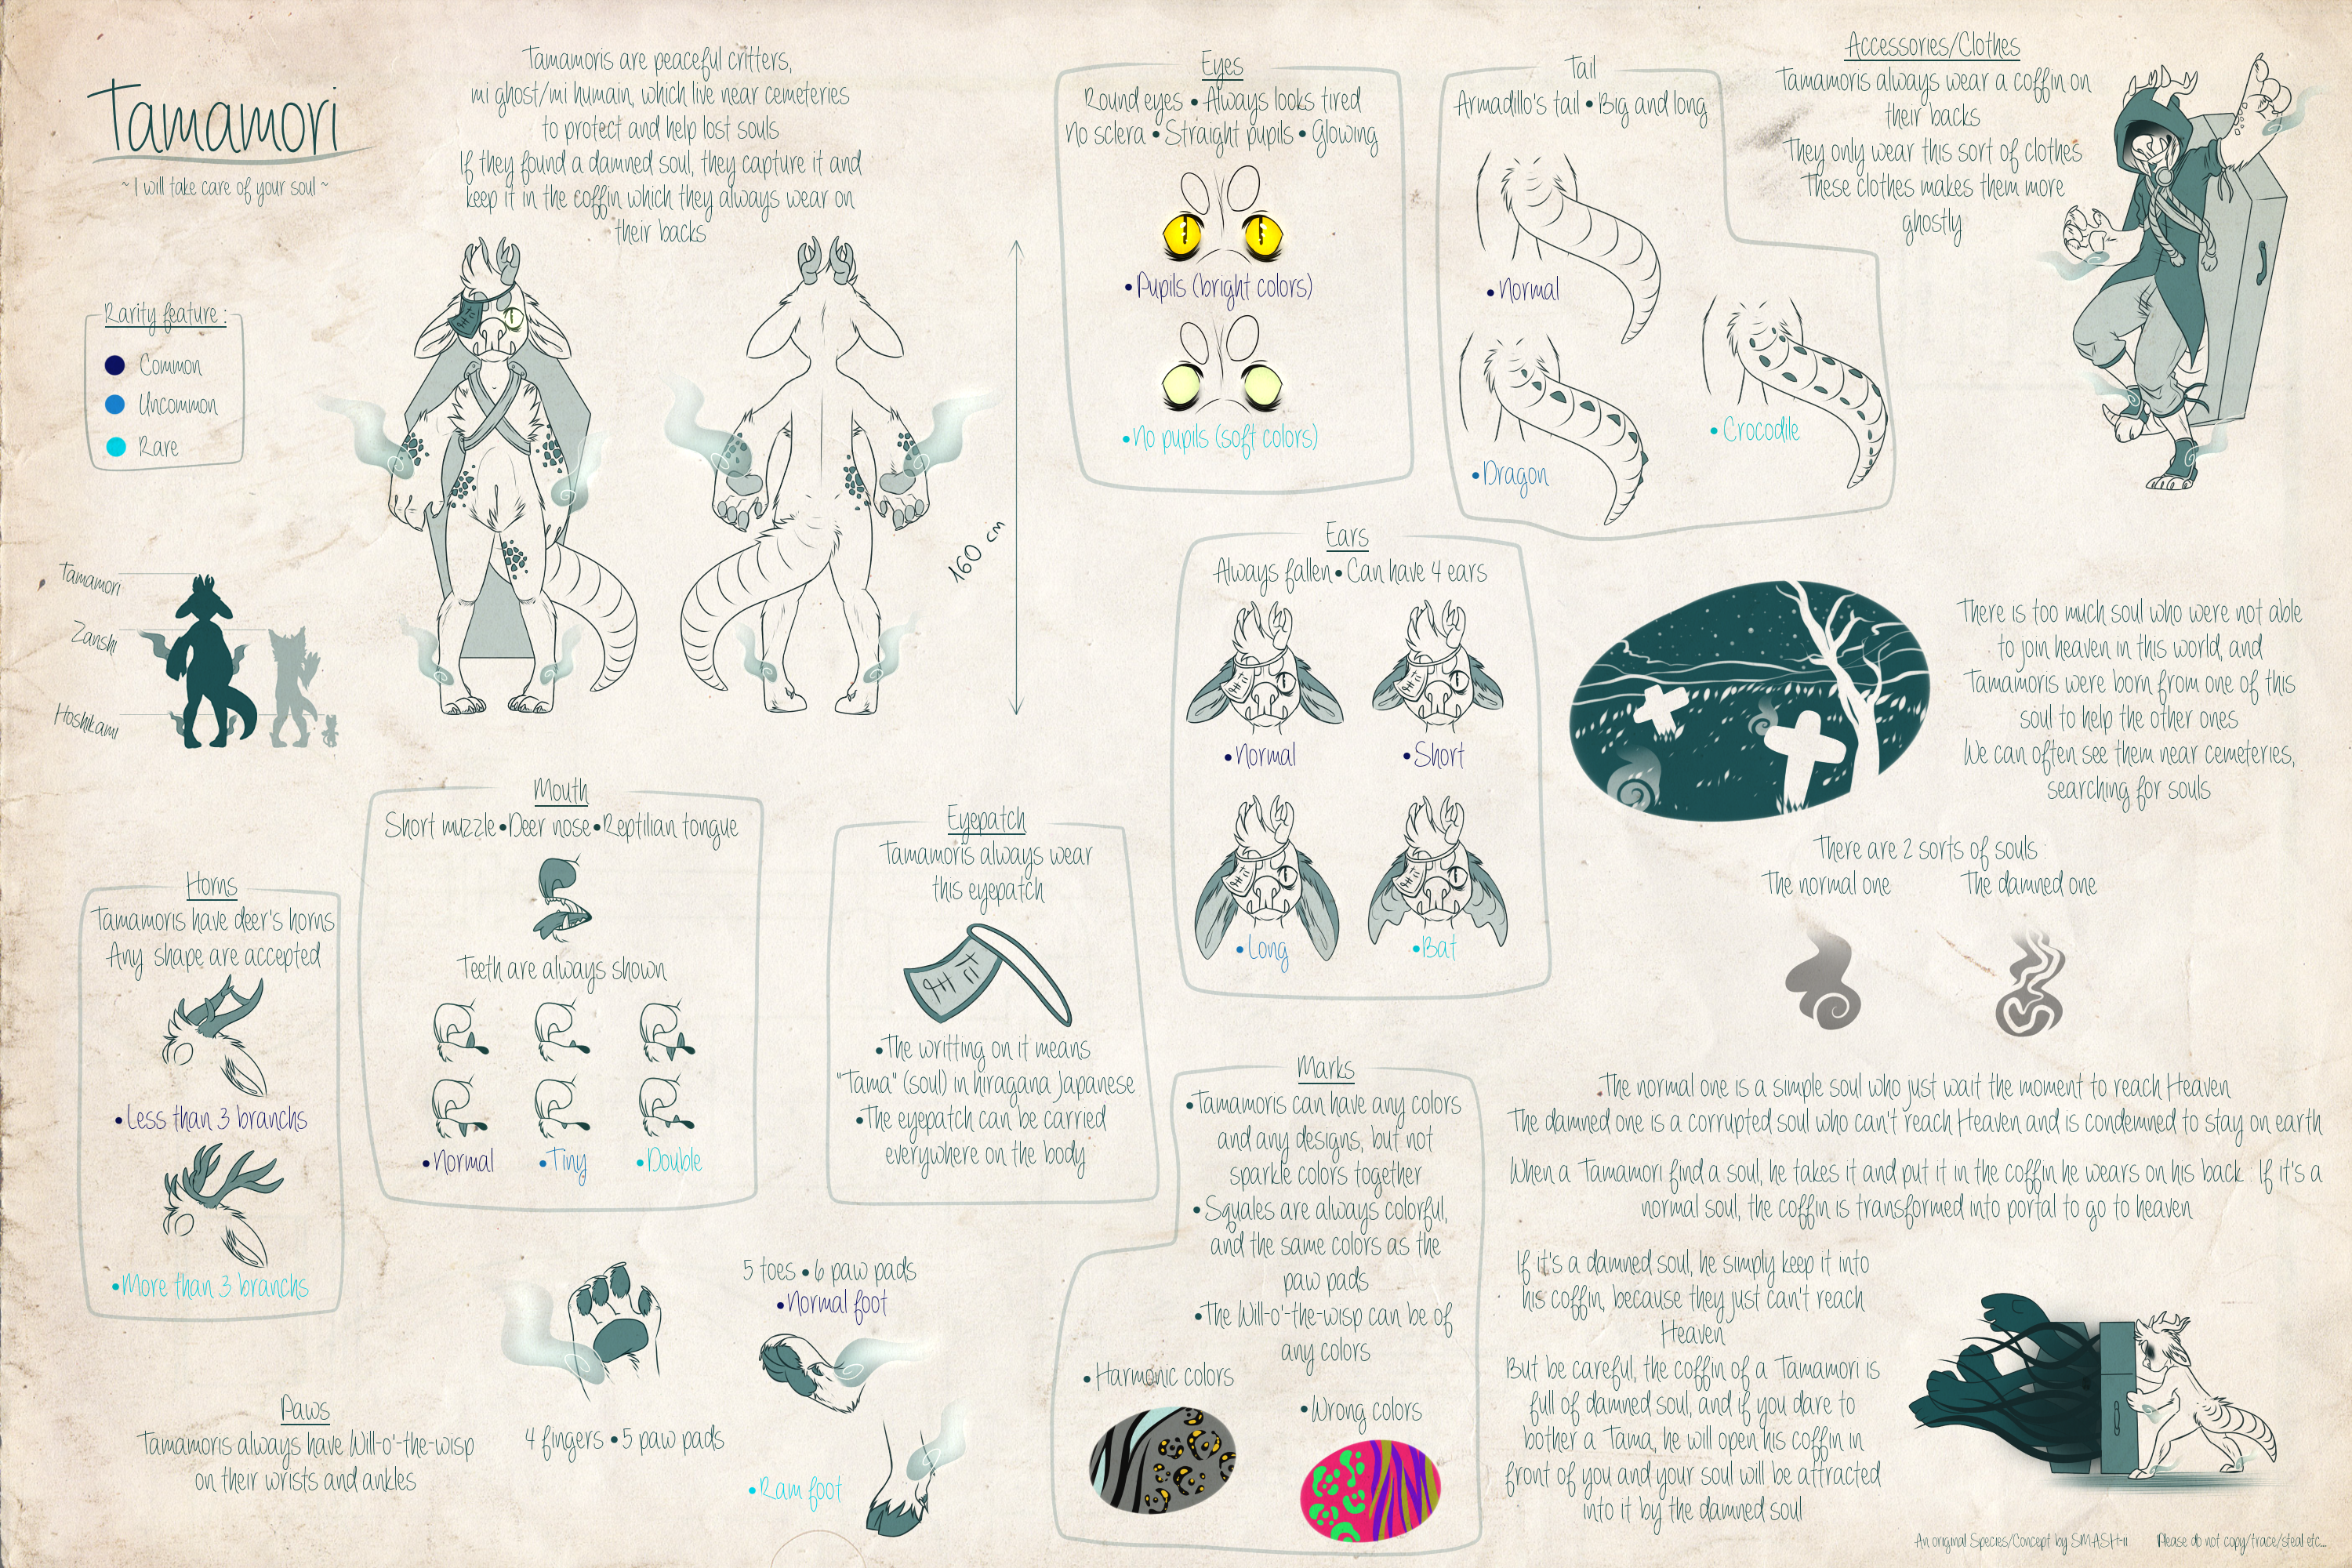 Tamamori
~ I will take care of your soul ~
Tamamoris are peaceful critters,
mi ghost/mi humain, which live near cemeteries
to protect and help lost souls
If they found a damned soul, they capture it and
keep it in the coffin which they always wear on
their backs
Rarity feature :
Common
Uncommon
Rare
160 cm
Tamamori
Zanshi
Hoshikami
Eyes
Round eyes • Always looks tired
No sclera • Straight pupils • Glowing
• Pupils (bright colors)
• No pupils (soft colors)
Tail
Armadillo's tail • Big and long
• Normal
• Dragon
• Crocodile
Accessories/Clothes
Tamamoris always wear a coffin on
their backs
They only wear this sort of clothes
These clothes makes them more
ghostly
Ears
Always fallen • Can have 4 ears
• Normal
• Short
• Long
• Bat
There is too much soul who were not able
to join heaven in this world, and
Tamamoris were born from one of this
soul to help the other ones
We can often see them near cemeteries,
searching for souls
There are 2 sorts of souls :
The normal one
The damned one
The normal one is a simple soul who just wait the moment to reach Heaven
The damned one is a corrupted soul who can't reach Heaven and is condemned to stay on earth
When a Tamamori find a soul, he takes it and put it in the coffin he wears on his back . If it's a
normal soul, the coffin is transformed into portal to go to heaven
If it's a damned soul, he simply keep it into
his coffin, because they just can't reach
Heaven
But be careful, the coffin of a Tamamori is
full of damned soul, and if you dare to
bother a Tama, he will open his coffin in
front of you and your soul will be attracted
into it by the damned soul
Horns
Tamamoris have deer's horns
Any shape are accepted
• Less than 3 branchs
• More than 3 branchs
Mouth
Short muzzle • Deer nose • Reptilian tongue
Teeth are always shown
• Normal
• Tiny
• Double
Eyepatch
Tamamoris always wear
this eyepatch
• The writting on it means
"Tama" (soul) in hiragana Japanese
• The eyepatch can be carried
everywhere on the body
Marks
• Tamamoris can have any colors
and any designs, but not
sparkle colors together
• Squales are always colorful,
and the same colors as the
paw pads
• The Will-o'-the-wisp can be of
any colors
• Harmonic colors
• Wrong colors
Paws
Tamamoris always have Will-o'-the-wisp
on their wrists and ankles
4 fingers • 5 paw pads
5 toes • 6 paw pads
• Normal foot
• Ram foot
An original Species/Concept by SMASH-II
Please do not copy/trace/steal etc...